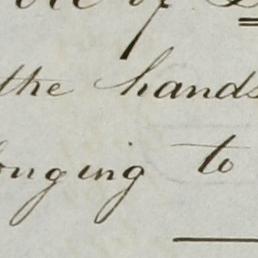 of
the hands
onging to